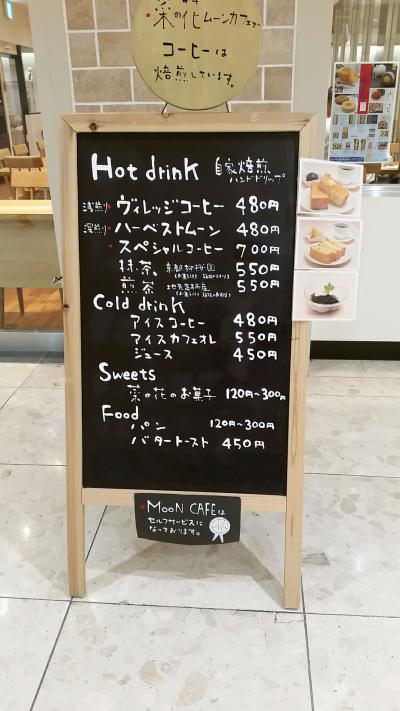 菜の花ムーンカフェで
コーヒーは
焙煎しています。
Hot drink 自家焙煎
ハンドドリップ
浅煎り ヴィレッジコーヒー 480円
深煎り ハーベストムーン 480円
スペシャルコーヒー 700円
抹茶 550円
煎茶 550円
Cold drink
アイスコーヒー 480円
アイスカフェオレ 550円
ジュース 450円
Sweets
菜の花のお菓子 120円〜300円
Food
パン 120円〜300円
バタートースト 450円
MOON CAFEは
セルフサービスに
なっております。